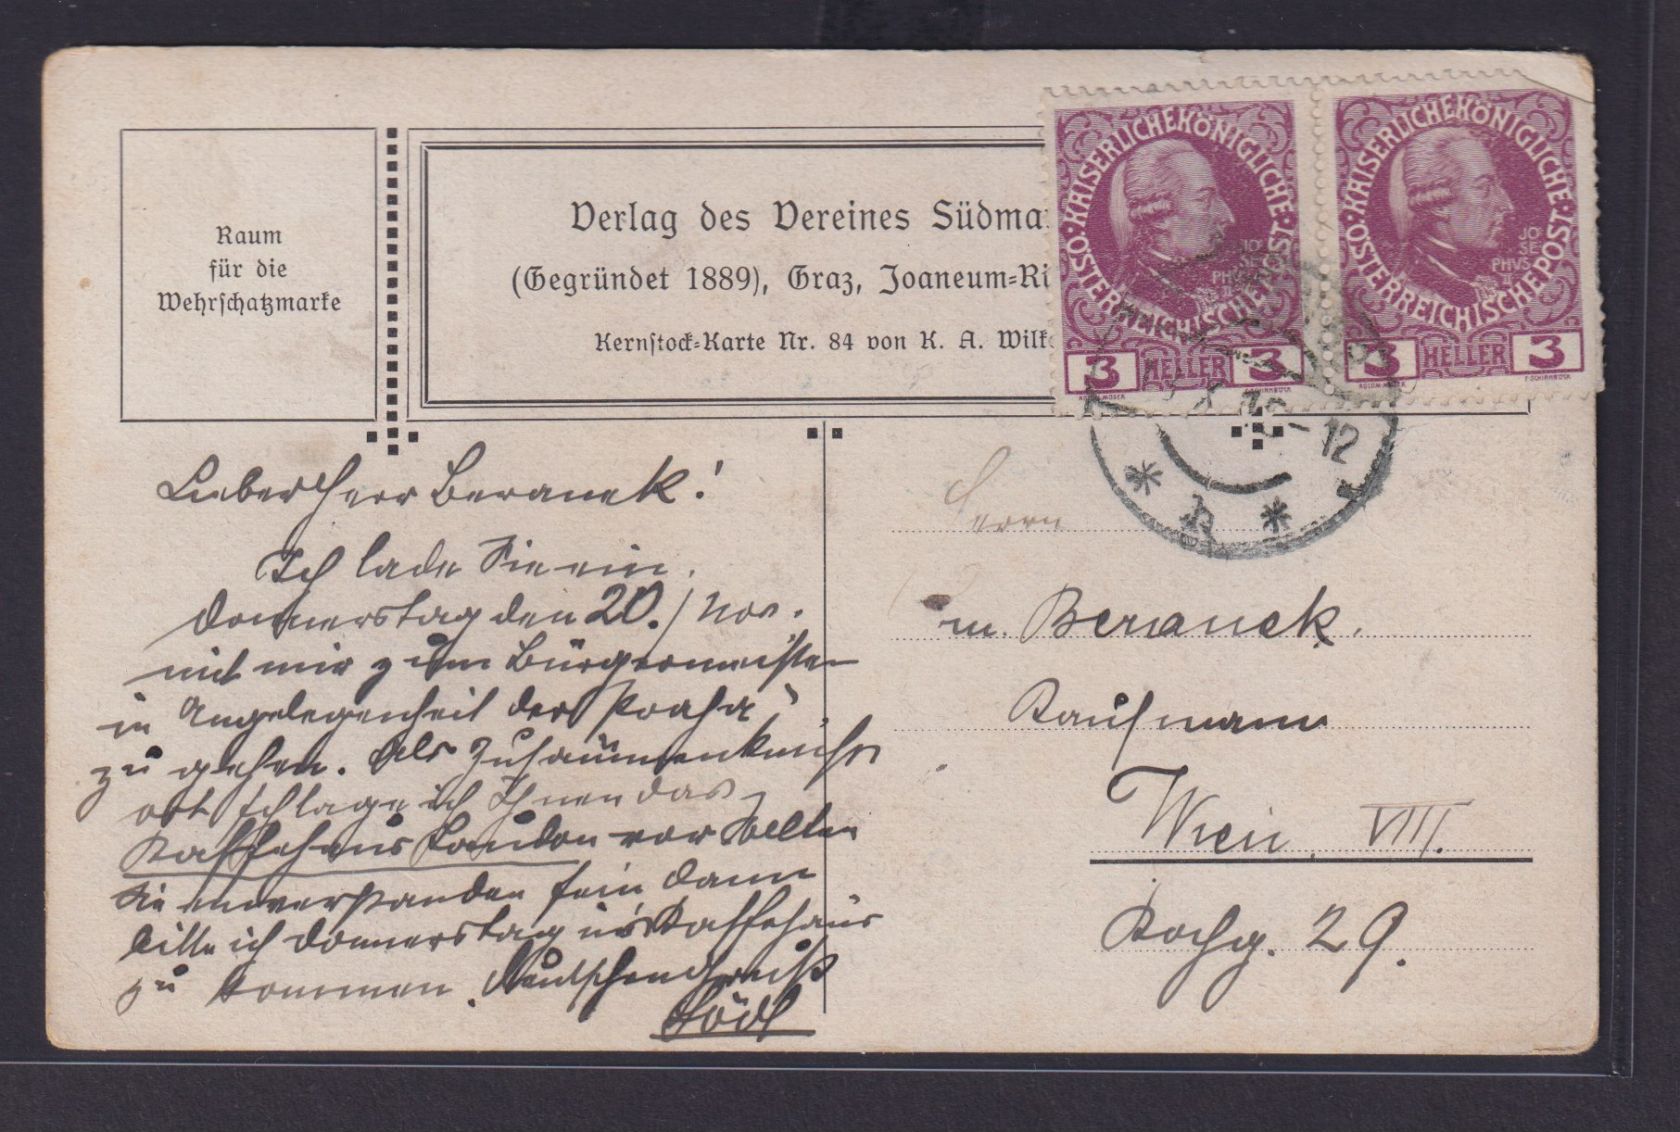 Raum
für die
Wehrschatzmarke
Verlag des Vereines Südma
(Gegründet 1889), Graz, Joaneum-Ri
Kernstock-Karte Nr. 84 von K. A. Wilk
KAISERLICHEKÖNIGLICHE
ÖSTERREICHISCHE POST
JO
SE
PHVS
3 HELLER 3
KAISERLICHEKÖNIGLICHE
ÖSTERREICHISCHE POST
JO
SE
PHVS
3 HELLER 3
12
Lieber Herr Beranek!
Ich lade Sie ein,
Donnerstag den 20./Nov.
mit mir zum Bürgermeister
in Angelegenheit der
zu gehen. Als Zusammenkunfts
ort schlage ich Ihnen das
Kaffeehaus Laudon vor. Sollten
Sie einverstanden sein, dann
bitte ich Donnerstag ins Kaffehaus
zu kommen. Deutschengruß
Södl
Herrn
m. Beranek.
Kaufmann
Wien, VIII.
Kochg. 29.